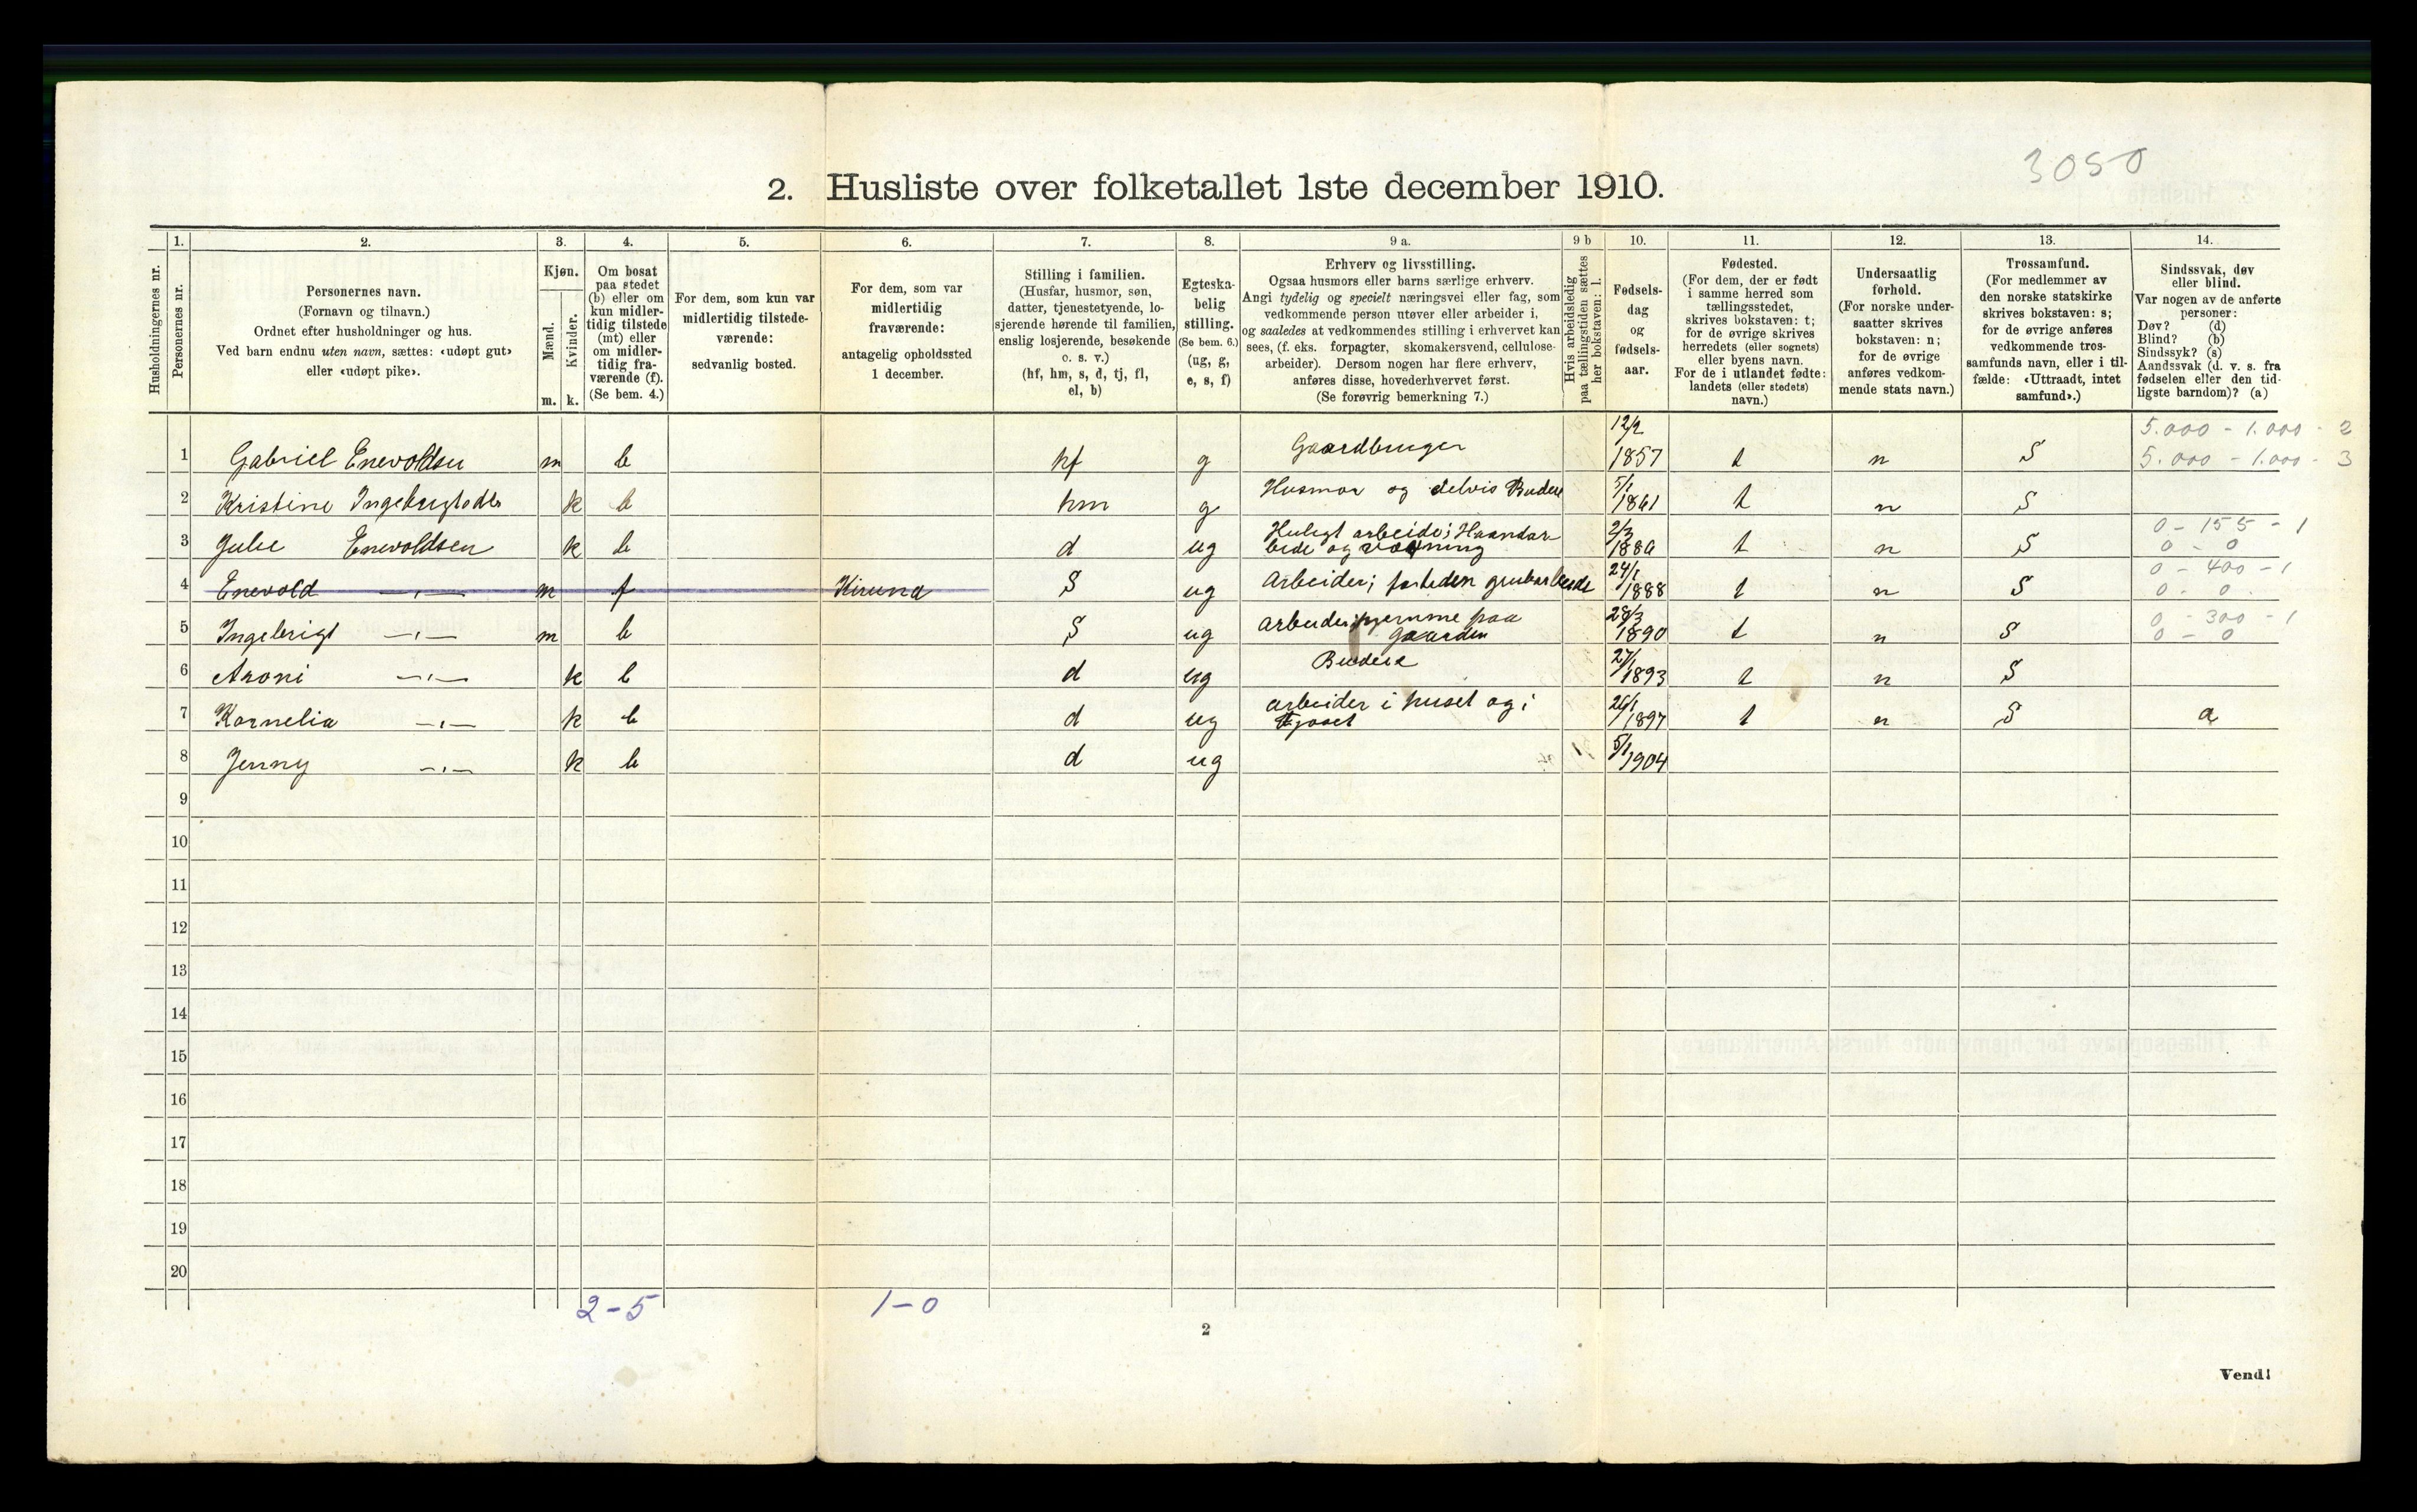 3050
2. Husliste over folketallet 1ste december 1910.
Husholdningernes nr.
1. Personernes nr.
2. Personernes navn.
(Fornavn og tilnavn.)
Ordnet efter husholdninger og hus.
Ved barn endnu uten navn, sættes: «udøpt gut»
eller «udøpt pike».
3. Kjøn.
Mænd. m.
Kvinder. k.
4. Om bosat
paa stedet
(b) eller om
kun midler-
tidig tilstede
(mt) eller
om midler-
tidig fra-
værende (f).
(Se bem. 4.)
5. For dem, som kun var
midlertidig tilstede-
værende:
sedvanlig bosted.
6. For dem, som var
midlertidig
fraværende:
antagelig opholdssted
1 december.
7. Stilling i familien.
(Husfar, husmor, søn,
datter, tjenestetyende, lo-
sjerende hørende til familien,
enslig losjerende, besøkende
o. s. v.)
(hf, hm, s, d, tj, fl,
el, b)
8. Egteska-
belig
stilling.
(Se bem. 6.)
(ug, g,
e, s, f)
9 a. Erhverv og livsstilling.
Ogsaa husmors eller barns særlige erhverv.
Angi tydelig og specielt næringsvei eller fag, som
vedkommende person utøver eller arbeider i,
og saaledes at vedkommendes stilling i erhvervet kan
sees, (f. eks. forpagter, skomakersvend, cellulose-
arbeider). Dersom nogen har flere erhverv,
anføres disse, hovederhvervet først.
(Se forøvrig bemerkning 7.)
9 b Hvis arbeidsledig
paa tællingstiden sættes
her bokstaven: l.
10. Fødsels-
dag
og
fødsels-
aar.
11. Fødested.
(For dem, der er født
i samme herred som
tællingsstedet,
skrives bokstaven: t;
for de øvrige skrives
herredets (eller sognets)
eller byens navn.
For de i utlandet fødte:
landets (eller stedets)
navn.)
12. Undersaatlig
forhold.
(For norske under-
saatter skrives
bokstaven: n;
for de øvrige
anføres vedkom-
mende stats navn.)
13. Trossamfund.
(For medlemmer av
den norske statskirke
skrives bokstaven: s;
for de øvrige anføres
vedkommende tros-
samfunds navn, eller i til-
fælde: «Uttraadt, intet
samfund».)
14. Sindssvak, døv
eller blind.
Var nogen av de anførte
personer:
Døv? (d)
Blind? (b)
Sindssyk? (s)
Aandssvak (d. v. s. fra
fødselen eller den tid-
ligste barndom)? (a)
1 Gabriel Enevoldsen m b hf g Gaardbruger 12/2 1857 t n S 5.000 - 1.000 - 2
5.000 - 1.000 - 3
2 Kristine k b hm g Husmor og delvis Budeie 5/1 1861 t n S
3 Julie Enevoldsen k b d ug Huligt arbeide; Haandar-
beide og vævning 2/3 t n S 0 - 155 - 1
0 - 0
4 Enevold —"— m f Kiruna S ug Arbeider; 24/1 1888 t n S 0 - 400 - 1
0 - 0
5 Ingebrigt —"— m b S ug arbeider hjemme paa
Gaarden 28/3 1890 t n S 0 - 300 - 1
0 - 0
6 Aroni —"— k b d ug Budeie 27/1 1893 t n S
7 Kornelia —"— k b d ug arbeider i huset og i
fjøset 26/1 1897 t n S a
8 Jenny —"— k b d ug 5/1 1904
9
10
11
12
13
14
15
16
17
18
19
20
2-5 1-0
2
Vend!